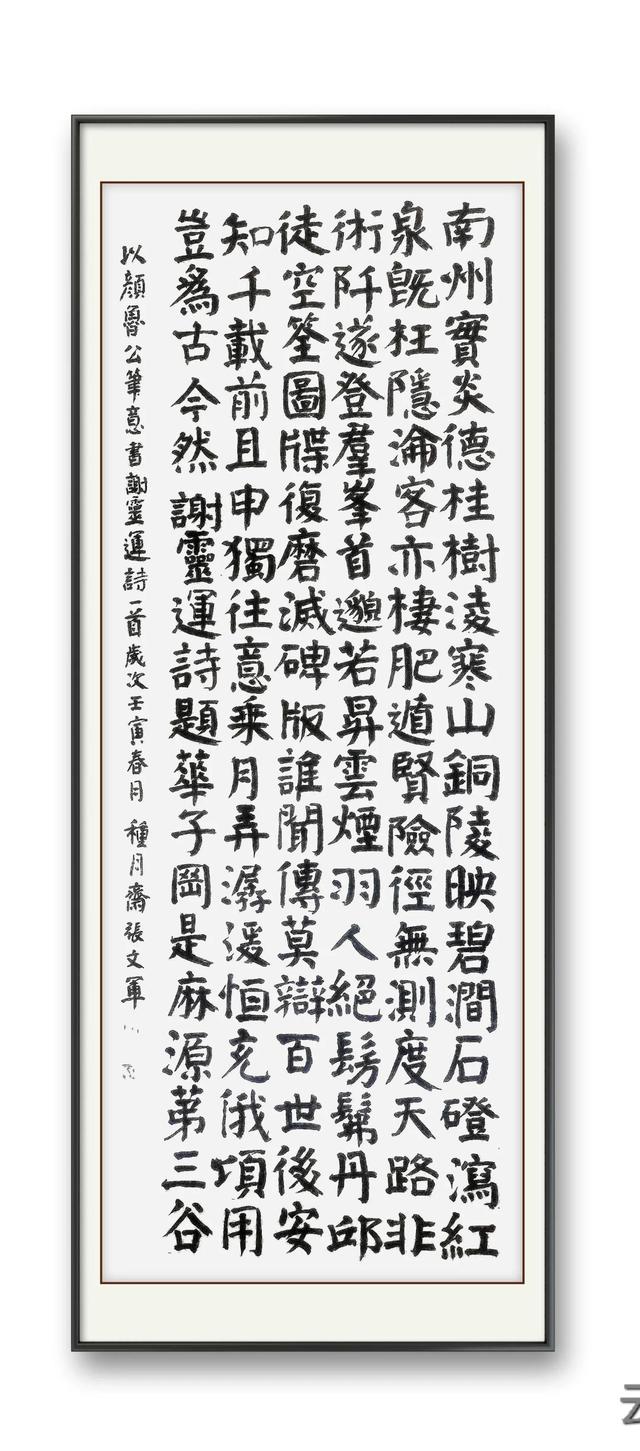 南州實炎德桂樹淩寒山銅陵映碧澗石磴瀉紅
泉既枉隱淪客亦棲肥遁賢險徑無測度天路非
術阡遂登羣峯首邈若昇雲煙羽人絕髣髴丹邱
徒空筌圖牒復磨滅碑版誰聞傳莫辯百世後安
知千載前且申獨往意乘月弄潺湲恒充俄頃用
豈爲古今然 謝靈運詩題華子岡是麻源第三谷
以顏魯公筆意書謝靈運詩一首歲次壬寅春月 種月齋張文軍